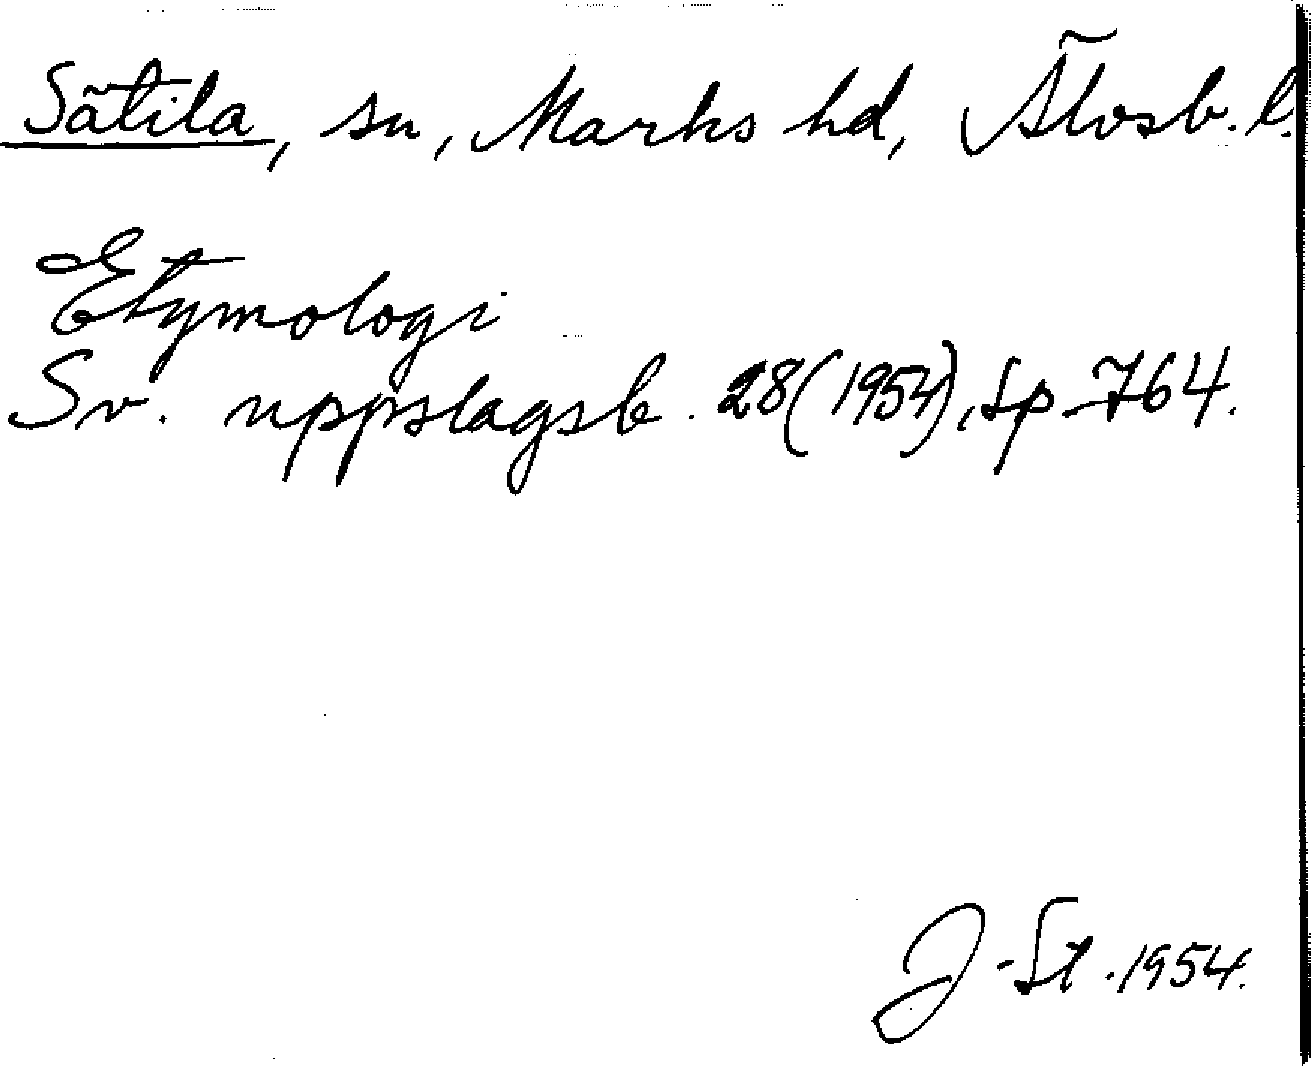 Sätila, sn, Marks hd, Älvsb. l.
Etymologi
Sv. uppslagsb. 28(1954), sp. 764.
J-St. 1954.